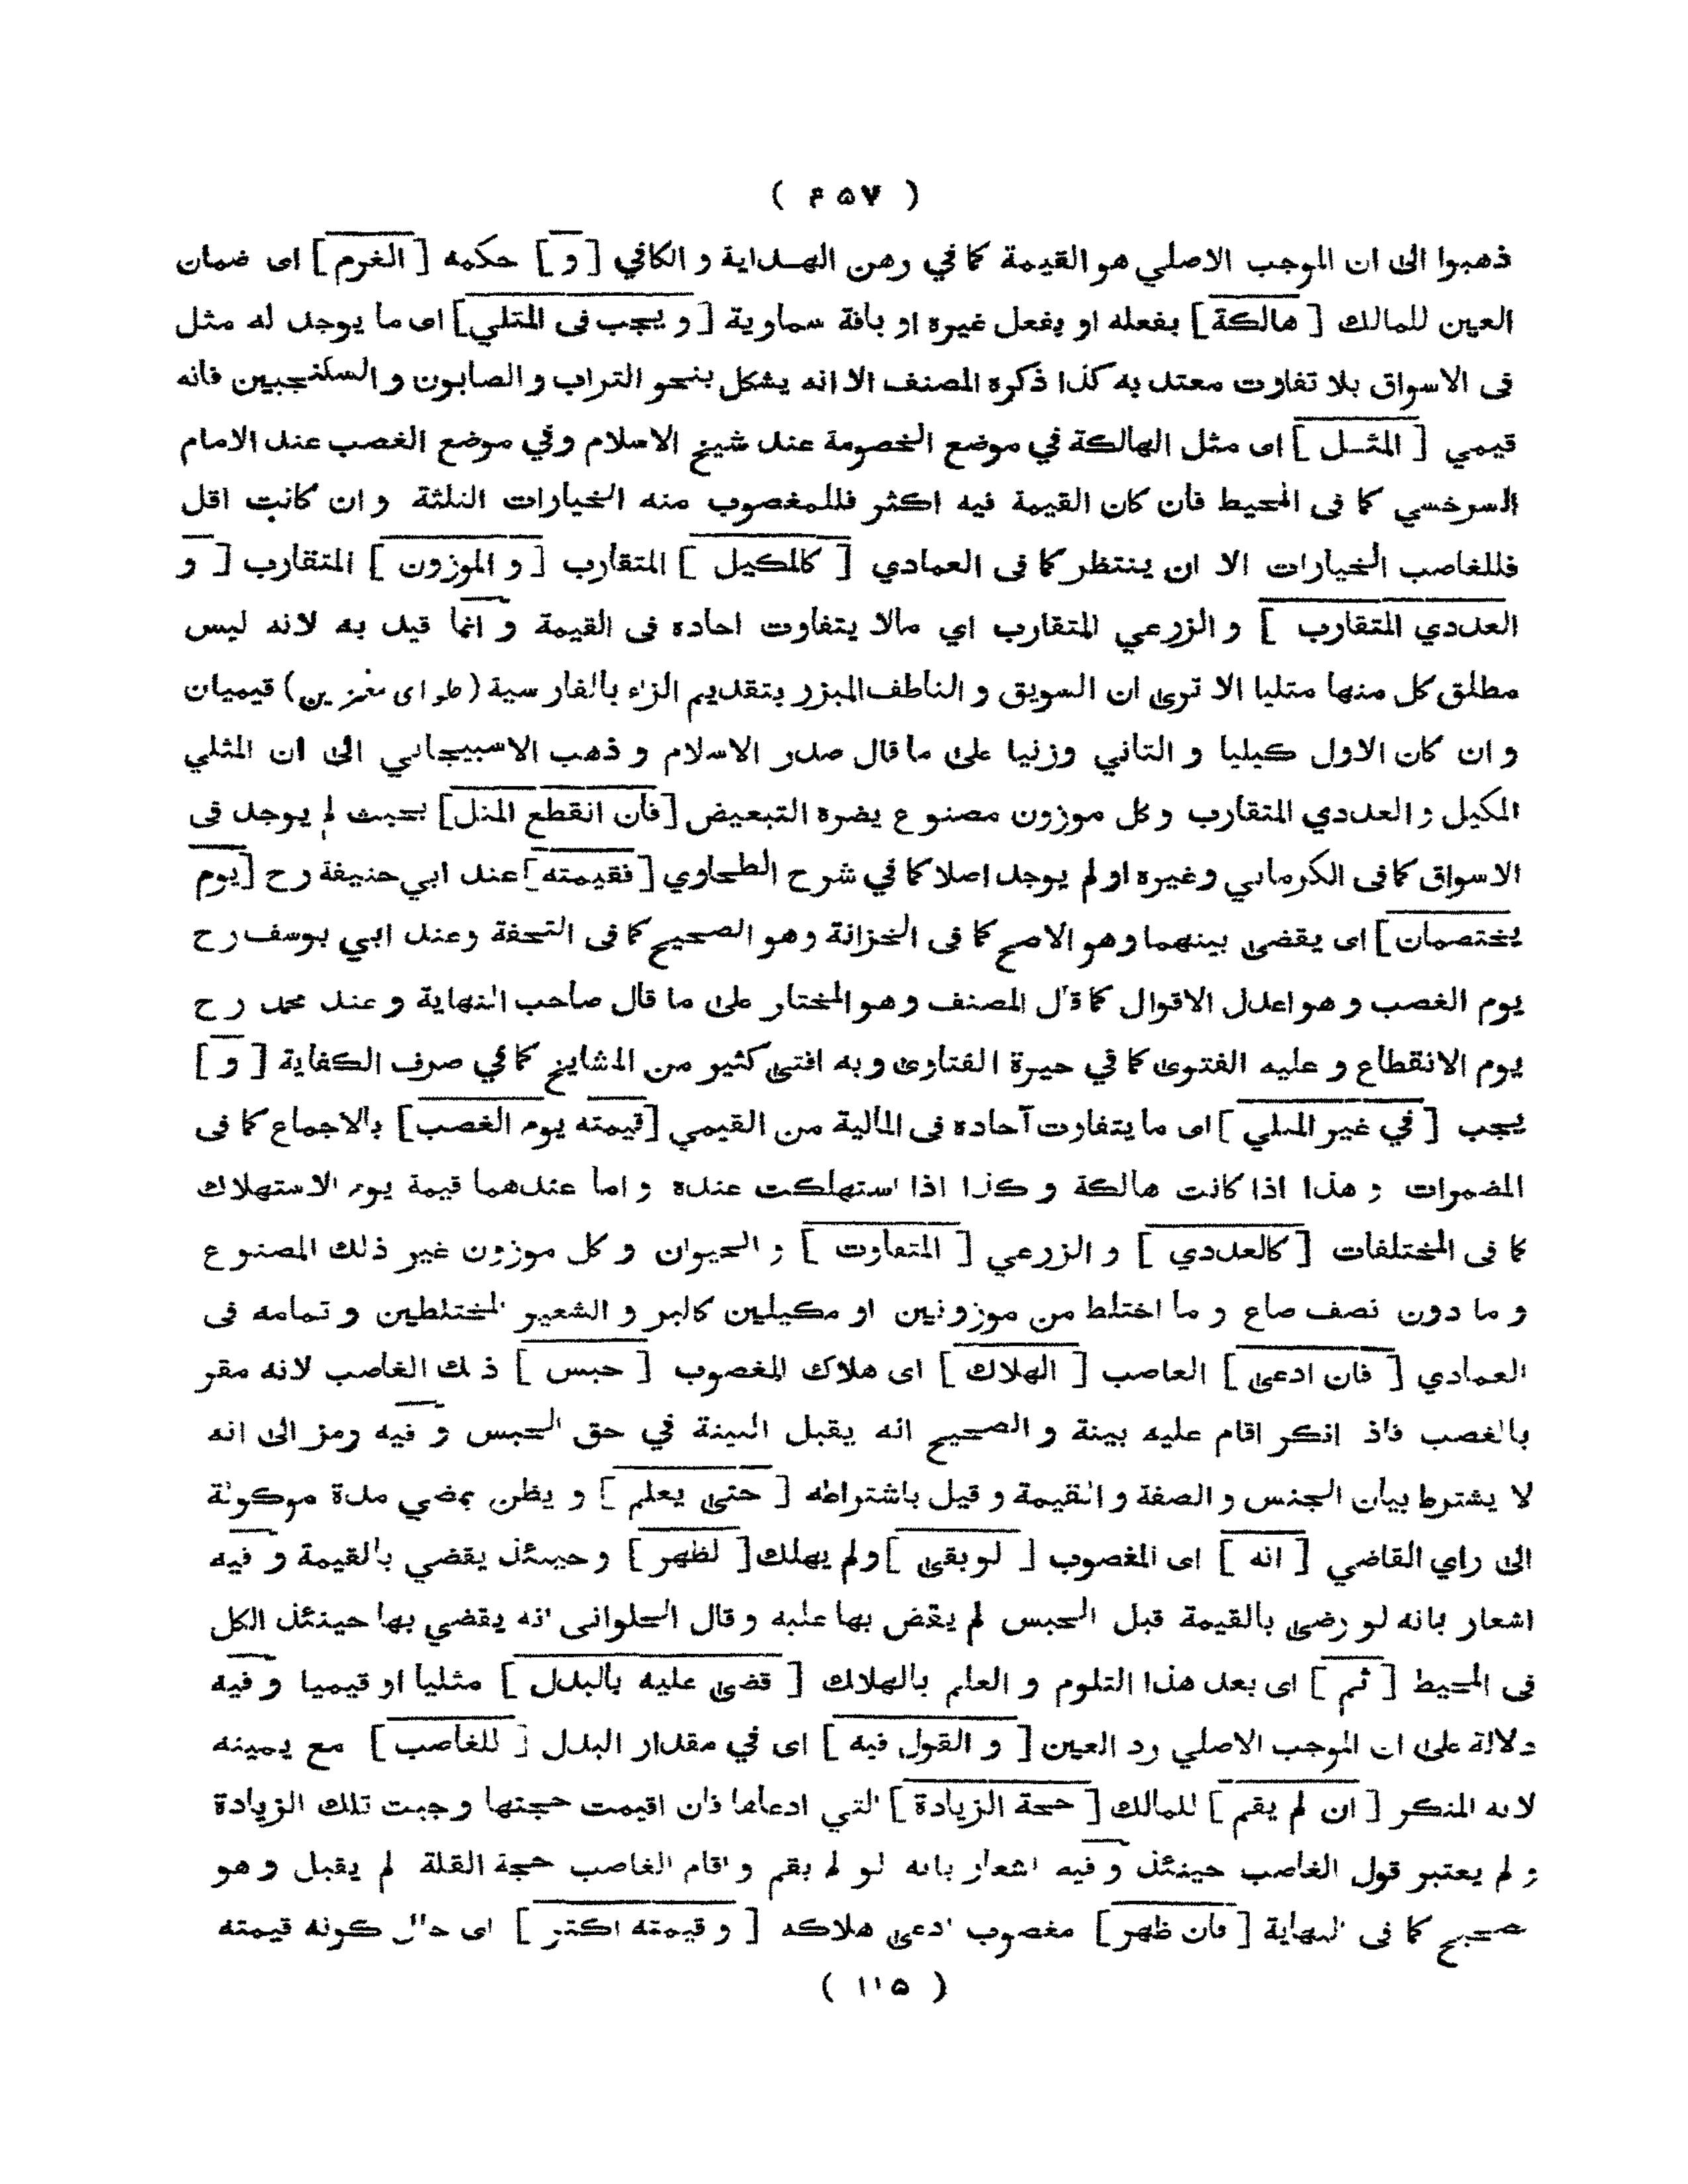 ( ۶۵۷ )
ذهبوا الى ان الموجب الاصلي هو القيمة كما في رهن الهداية و الكافي [ و ] حكمه [ الغرم ] اى ضمان
العين للمالك [ هالكة ] بفعله او بفعل غيره او بافة سماوية [ و يجب فى المثلي ] اى ما يوجد له مثل
فى الاسواق بلا تفاوت معتد به كذا ذكره المصنف الا انه يشكل بنحو التراب و الصابون و السكنجبين فانه
قيمي [ المثل ] اى مثل الهالكة في موضع الخصومة عند شيخ الاسلام وفي موضع الغصب عند الامام
السرخسي كما فى المحيط فان كان القيمة فيه اكثر فللمغصوب منه الخيارات الثلثة و ان كانت اقل
فللغاصب الخيارات الا ان ينتظر كما فى العمادي [ كالمكيل ] المتقارب [ و الموزون ] المتقارب [ و
العددي المتقارب ] و الزرعي المتقارب اي مالا يتفاوت احاده فى القيمة و انما قيد به لانه ليس
مطلق كل منها مثليا الا ترى ان السويق و الناطف المبزر بتقديم الزاء بالفارسية ( حلواى مغزين ) قيميان
و ان كان الاول كيليا و الثاني وزنيا على ما قال صدر الاسلام و ذهب الاسبيجابي الى ان المثلي
المكيل و العددي المتقارب و كل موزون مصنوع يضره التبعيض [ فان انقطع المثل ] بحيث لم يوجد فى
الاسواق كما فى الكرماني و غيره او لم يوجد اصلا كما في شرح الطحاوي [ فقيمته ] عند ابي حنيفة رح [ يوم
يختصمان ] اى يقضى بينهما و هو الاصح كما فى الخزانة و هو الصحيح كما فى التحفة و عند ابي يوسف رح
يوم الغصب و هو اعدل الاقوال كما قال المصنف و هو المختار على ما قال صاحب النهاية و عند محمد رح
يوم الانقطاع و عليه الفتوى كما في حيرة الفتاوى و به افتى كثير من المشايخ كما في صرف الكفاية [ و ]
يجب [ في غير المثلي ] اى ما يتفاوت آحاده فى المالية من القيمي [ قيمته يوم الغصب ] بالاجماع كما فى
المضمرات و هذا اذا كانت هالكة و كذا اذا استهلكت عنده و اما عندهما قيمة يوم الاستهلاك
كما فى المختلفات [ كالعددي ] و الزرعي [ المتفاوت ] و الحيوان و كل موزون غير ذلك المصنوع
و ما دون نصف صاع و ما اختلط من موزونين او مكيلين كالبر و الشعير المختلطين و تمامه فى
العمادي [ فان ادعى ] الغاصب [ الهلاك ] اى هلاك المغصوب [ حبس ] ذلك الغاصب لانه مقر
بالغصب فاذ انكر اقام عليه بينة و الصحيح انه يقبل البينة في حق الحبس و فيه رمز الى انه
لا يشترط بيان الجنس و الصفة و القيمة و قيل باشتراطه [ حتى يعلم ] و يظن بمضي مدة موكولة
الى راي القاضي [ انه ] اى المغصوب [ لو بقى ] و لم يهلك [ لظهر ] و حينئذ يقضي بالقيمة و فيه
اشعار بانه لو رضى بالقيمة قبل الحبس لم يقض بها عليه و قال الحلوانى انه يقضي بها حينئذ الكل
فى المحيط [ ثم ] اى بعد هذا التلوم و العلم بالهلاك [ قضى عليه بالبدل ] مثليا او قيميا و فيه
دلالة على ان الموجب الاصلي رد العين [ و القول فيه ] اى في مقدار البدل [ للغاصب ] مع يمينه
لانه المنكر [ ان لم يقم ] للمالك [ حجة الزيادة ] التي ادعاها فان اقيمت حجتها وجبت تلك الزيادة
و لم يعتبر قول الغاصب حينئذ و فيه اشعار بانه لو لم يقم و اقام الغاصب حجة القلة لم يقبل و هو
صحيح كما فى النهاية [ فان ظهر ] مغصوب ادعى هلاكه [ و قيمته اكثر ] اى حال كونه قيمته
( ۱۱۵ )